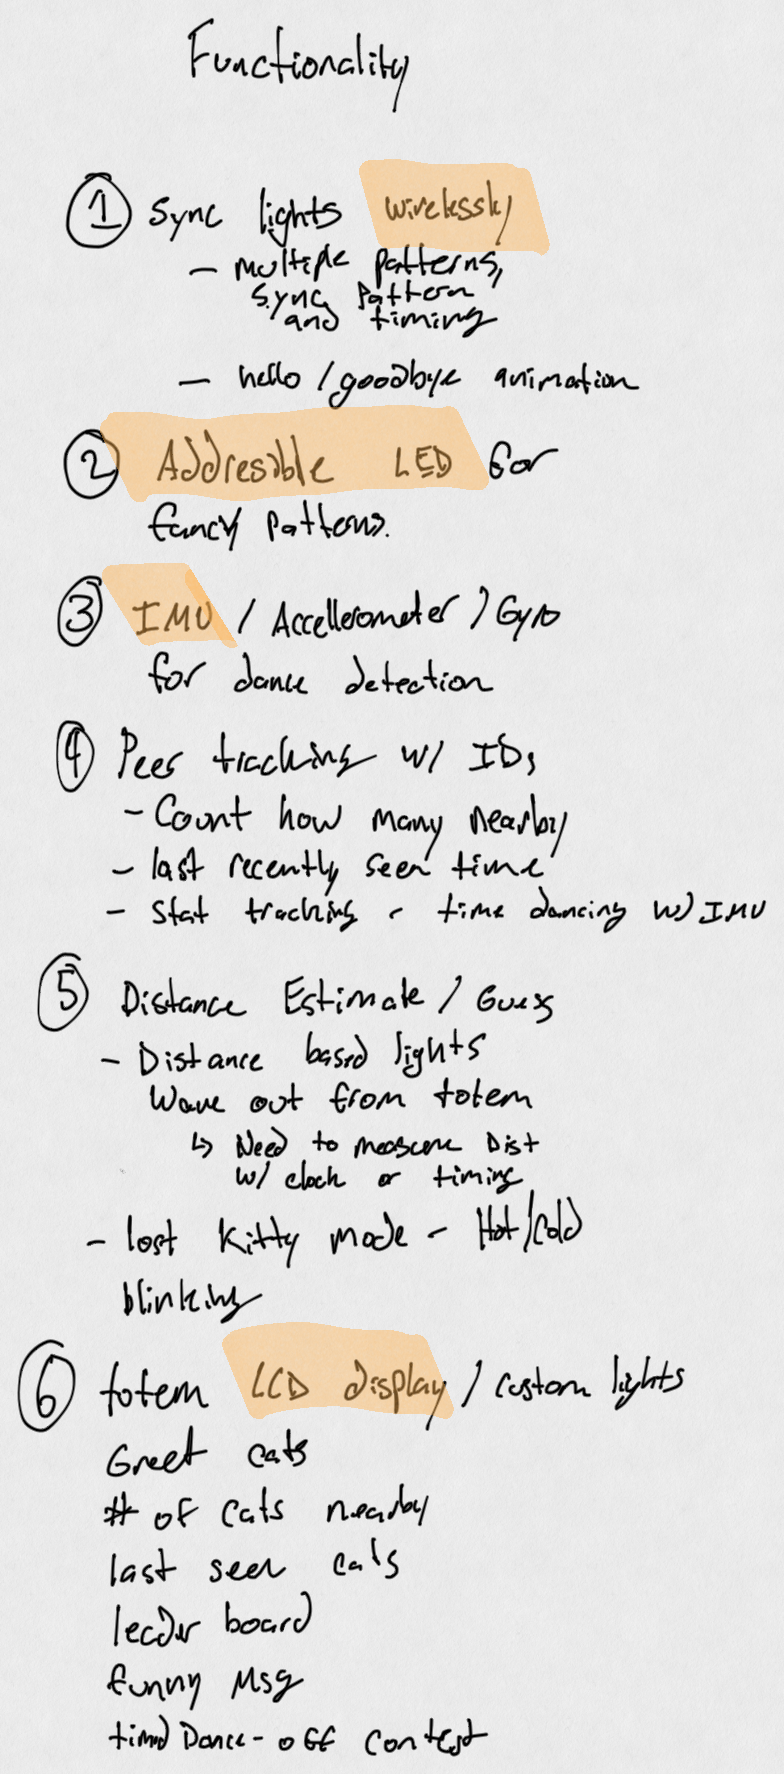 Functionality
① Sync lights wirelessly
- multiple patterns,
sync pattern
and timing
- hello / goodbye animation
② Addresable LED for
fancy patterns.
③ IMU / Accellerometer / Gyro
for dance detection
④ Peer tracking w/ IDs
- Count how many nearby
- last recently seen time
- Stat tracking - time dancing w/ IMU
⑤ Distance Estimate / Guess
- Distance based lights
Wave out from totem
↳ Need to measure Dist
w/ clock or timing
- lost Kitty mode - Hot/Cold
blinking
⑥ totem LCD display / custom lights
Greet cats
# of cats nearby
last seen cats
leader board
funny Msg
timed Dance-off contest